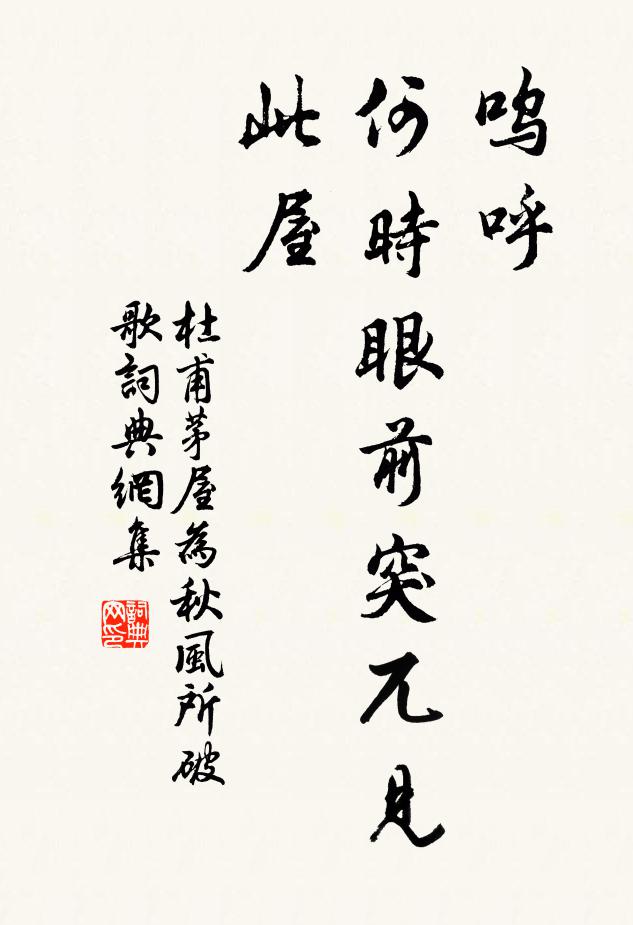 嗚呼
何時眼前突兀見
此屋
杜甫茅屋為秋風所破
歌詞典網集
詞典
网印